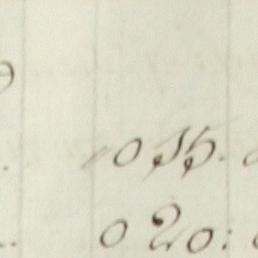 0 15.
0 20: